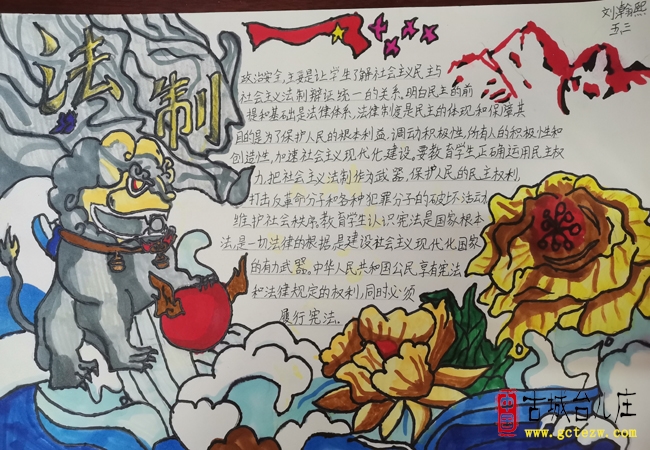 刘瀚熙
五二
法制
政治安全,主要是让学生了解社会主义民主与
社会主义法制辩证统一的关系,明白民主的前
提和基础是法律体系,法律制度是民主的体现和保障,其
目的是为了保护人民的根本利益,调动积极性,所有人的积极性和
创造性,加速社会主义现代化建设。要教育学生正确运用民主权
力,把社会主义法制作为武器,保护人民的民主权利,
打击反革命分子和各种犯罪分子的破坏活动
维护社会秩序。教育学生认识宪法是国家根本
法,是一切法律的根据,是建设社会主义现代化国家
的有力武器。中华人民共和国公民享有宪法
和法律规定的权利,同时必须
履行宪法.
古城台儿庄
www.gctezw.com